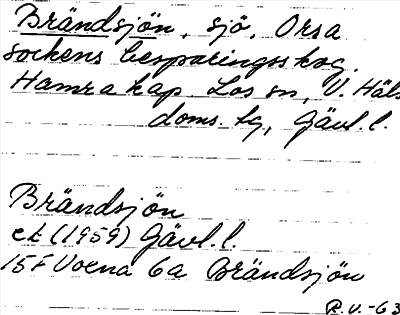 Brändsjön, sjö, Orsa
sockens besparingsskog.
Hamra kap. Los sn, V. Häls
doms. tg, Gävl. l.
Brändsjön
ek (1959) Gävl. l.
15F Voxna 6a Brändsjön
R.V.-63